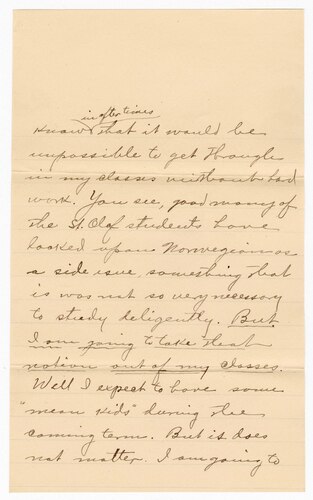 in after times
know that it would be
impossible to get through
in my classes without hard
work. You see, good many of
the St. Olaf students have
looked upon Norwegian as
a side isue, something that
is was not so very necessary
to study deligently. But
I am going to take that
notion out of my classes.
Well I expect to have some
"mean kids" during the
coming term. But is does
not matter. I am going to